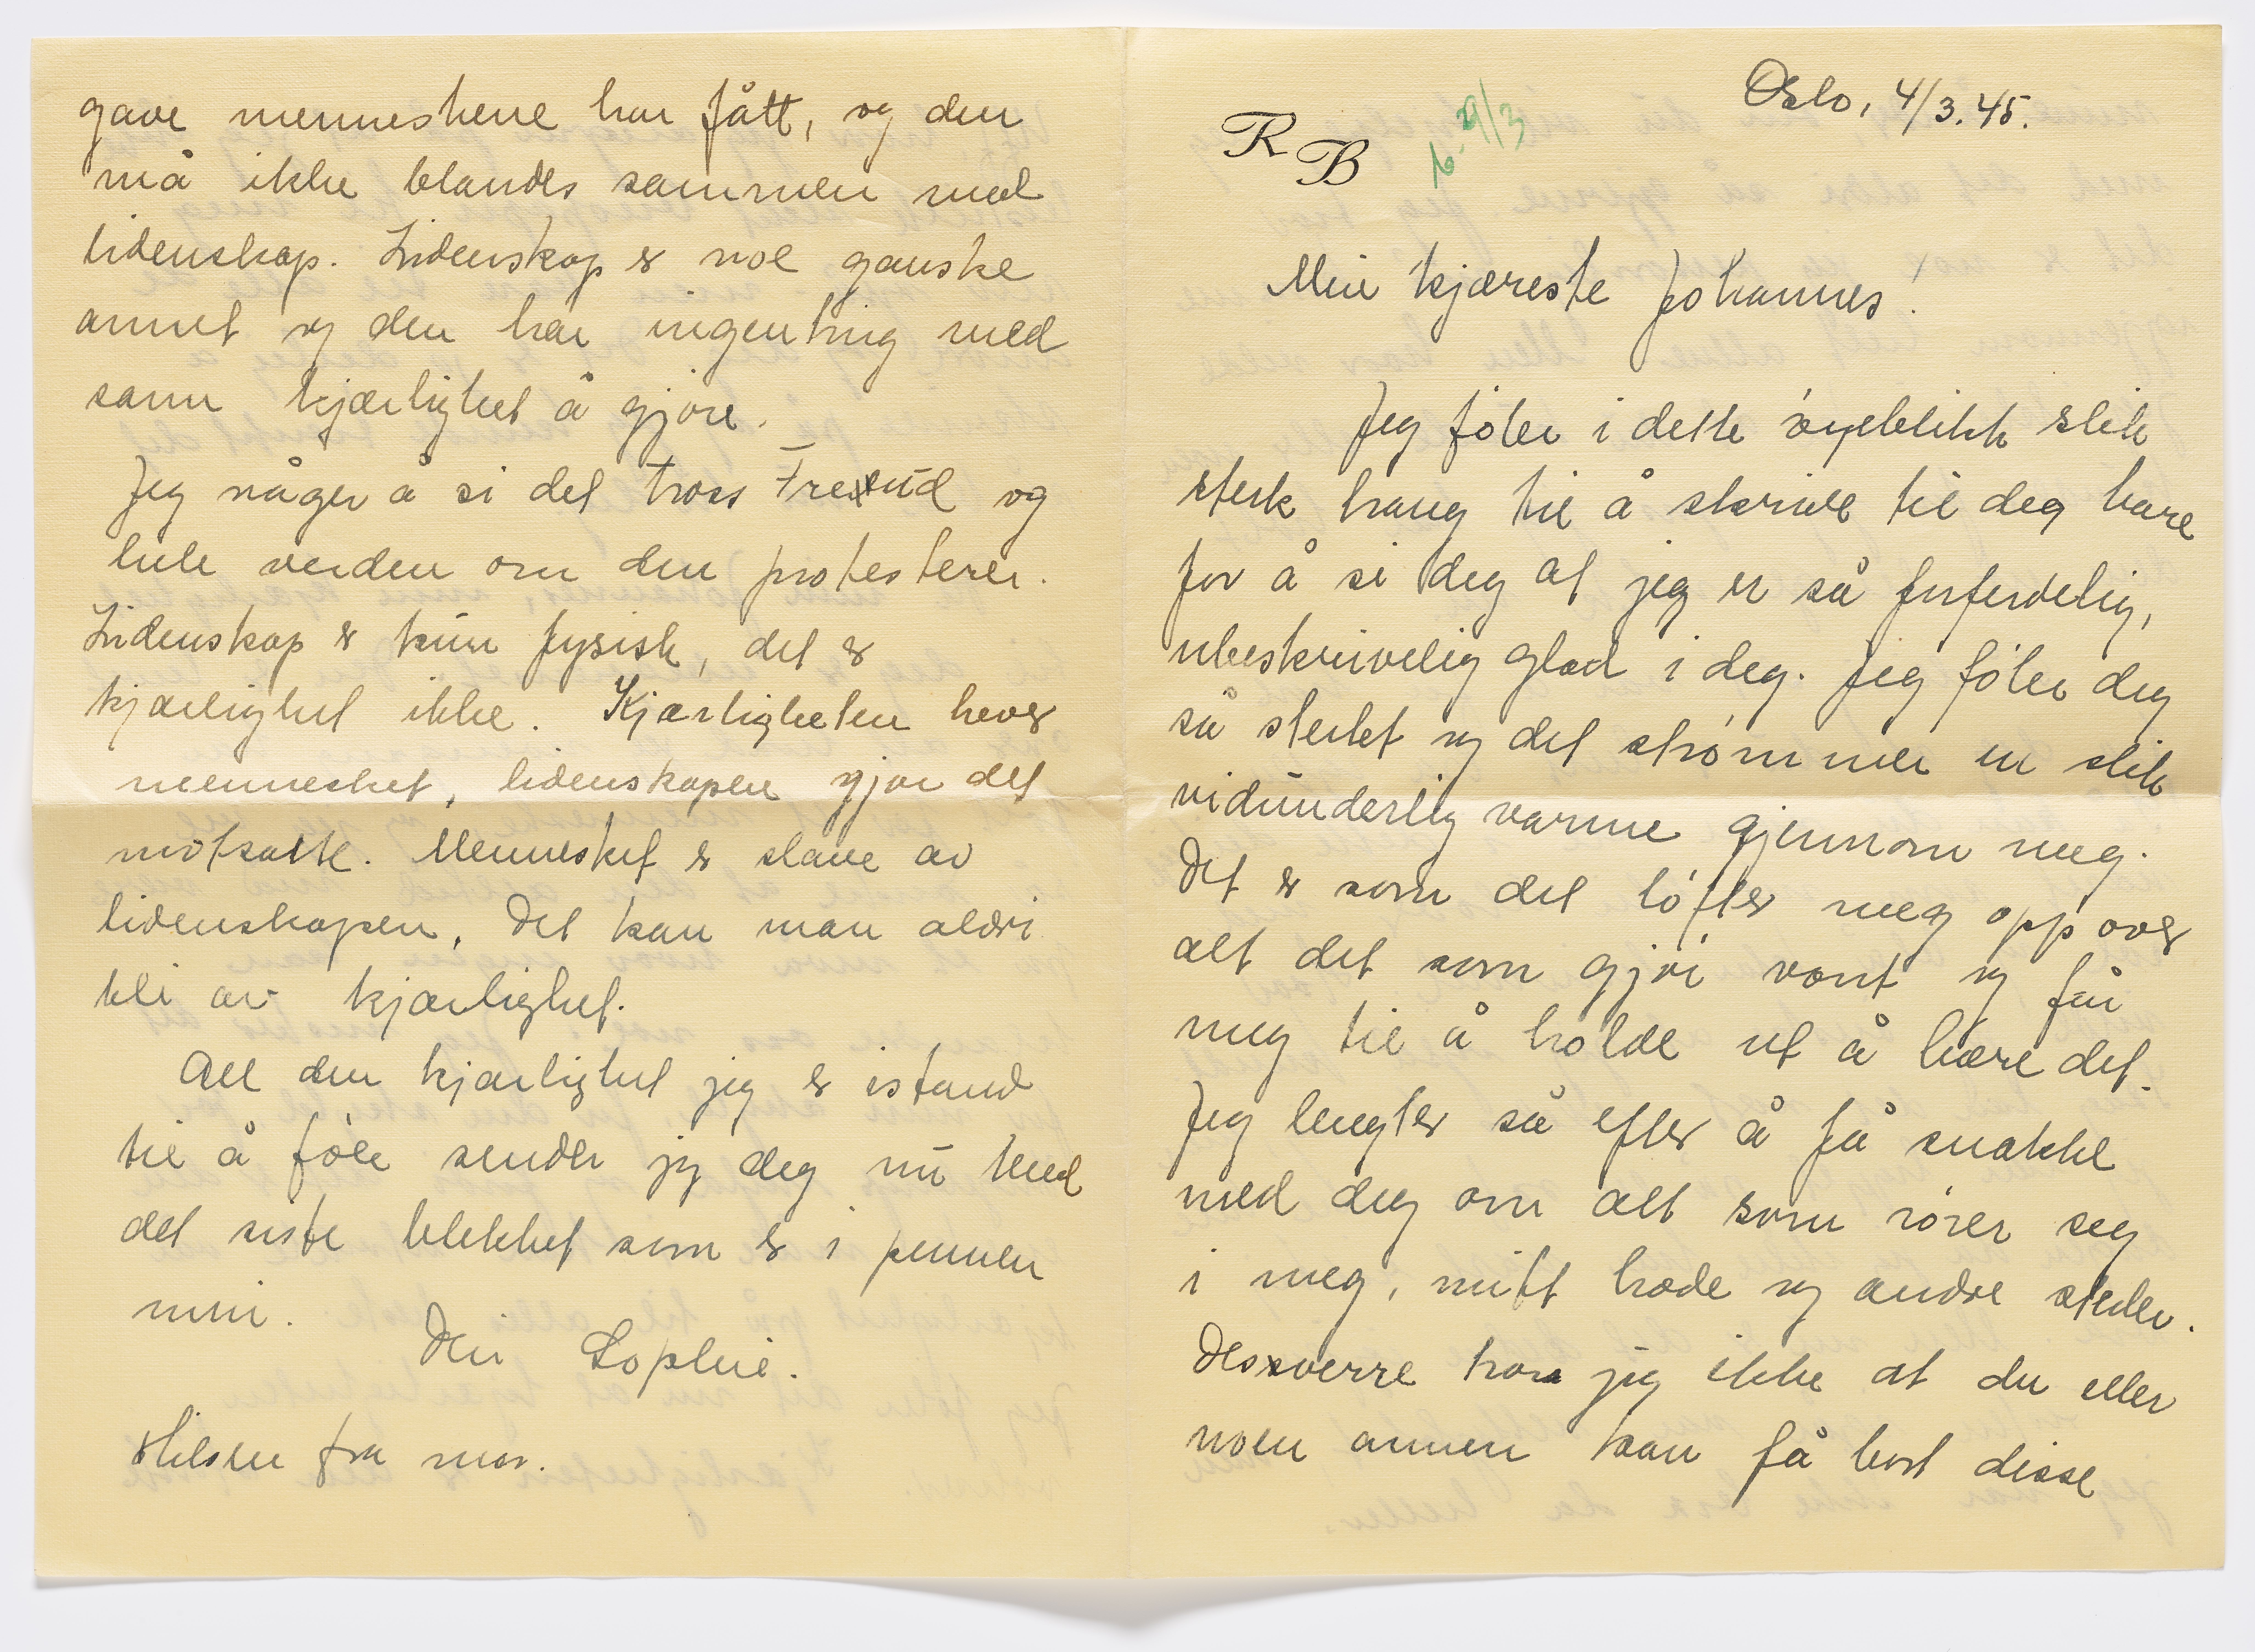 Oslo, 4/3.45.
R B
29/3
Min kjæreste Johannes!
Jeg føler i dette øyeblikk slik
sterk trang til å skrive til deg bare
for å si deg at jeg er så forferdelig,
ubeskrivelig glad i deg. Jeg føler deg
så sterkt og det strømmer en slik
vidunderlig varme gjennom meg.
Det er som det løfter meg opp over
alt det som gjør vont og får
meg til å holde ut å bære det.
Jeg lengter så efter å få snakke
med deg om alt som rører seg
i meg, mitt hode og andre steder.
Dessverre tror jeg ikke at du eller
noen annen kan få bort disse
gave menneskene har fått, og den
må ikke blandes sammen med
lidenskap. Lidenskap er noe ganske
annet og den har ingenting med
sann kjærlighet å gjøre.
Jeg våger å si det tross Freud og
hele verden om den protesterer.
Lidenskap er kun fysisk, det er
kjærlighet ikke. Kjærligheten hever
mennesket, lidenskapen gjør det
motsatte. Mennesket er slave av
lidenskapen. Det kan man aldri
bli av kjærlighet.
All den kjærlighet jeg er istand
til å føle sender jeg deg nu med
det siste blekket som er i pennen
min.
Din Sophie.
Hilsen fra mor.